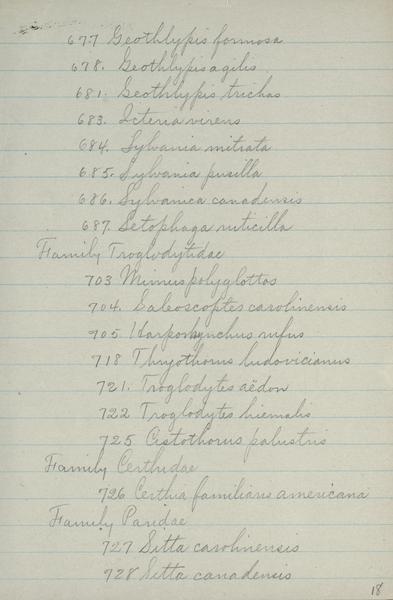 677 Geothlypis formosa
678. Geothlypis agilis
681. Geothlypis trichas
683. Icteria virens
684. Sylvania mitrata
685. Sylvania pusilla
686. Sylvanica canadensis
687. Setophaga ruticilla
Family Troglodytidae
703 Mimus polyglottos
704. Galeoscoptes carolinensis
705 Harporhynchus rufus
718 Thryothorus ludovicianus
721. Troglodytes aëdon
722 Troglodytes hiemalis
725 Cistothorus palustris
Family Certhidae
726 Certhia familiaris americana
Family Paridae
727 Sitta carolinensis
728 Sitta canadensis
18